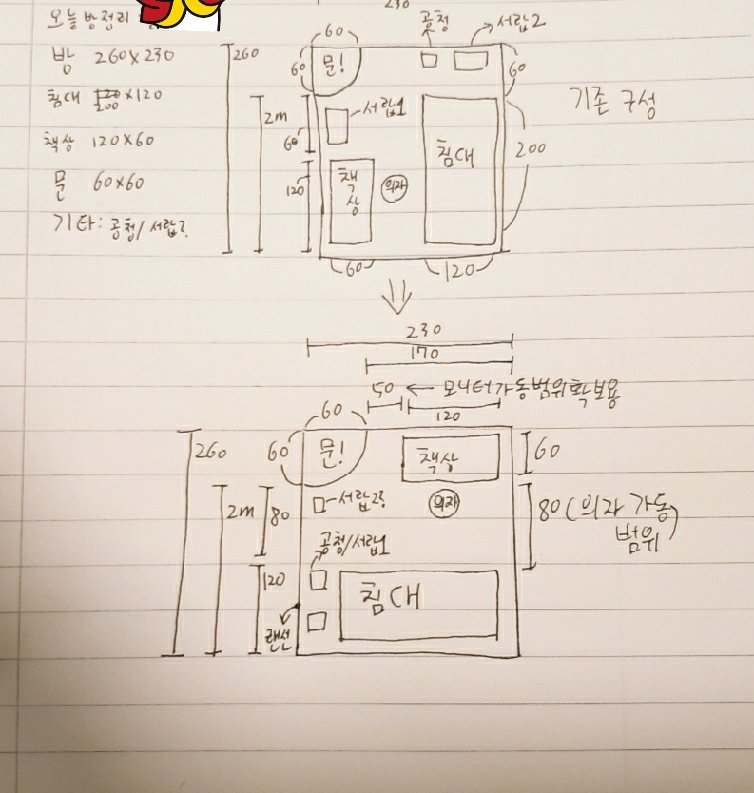 오늘 방정리
방 260x230
침대 200x120
책상 120x60
문 60x60
기타: 공청/서랍2
230
60
공청
서랍2
260
60
문!
60
기존 구성
2m
서랍1
60
침대
200
120
책상
의자
60
120
230
170
50 ← 모니터가동범위확보용
120
60
260
60
문!
책상
60
2m
80
서랍2
의자
80(의자 가동
범위)
공청/서랍1
120
침대
랜선